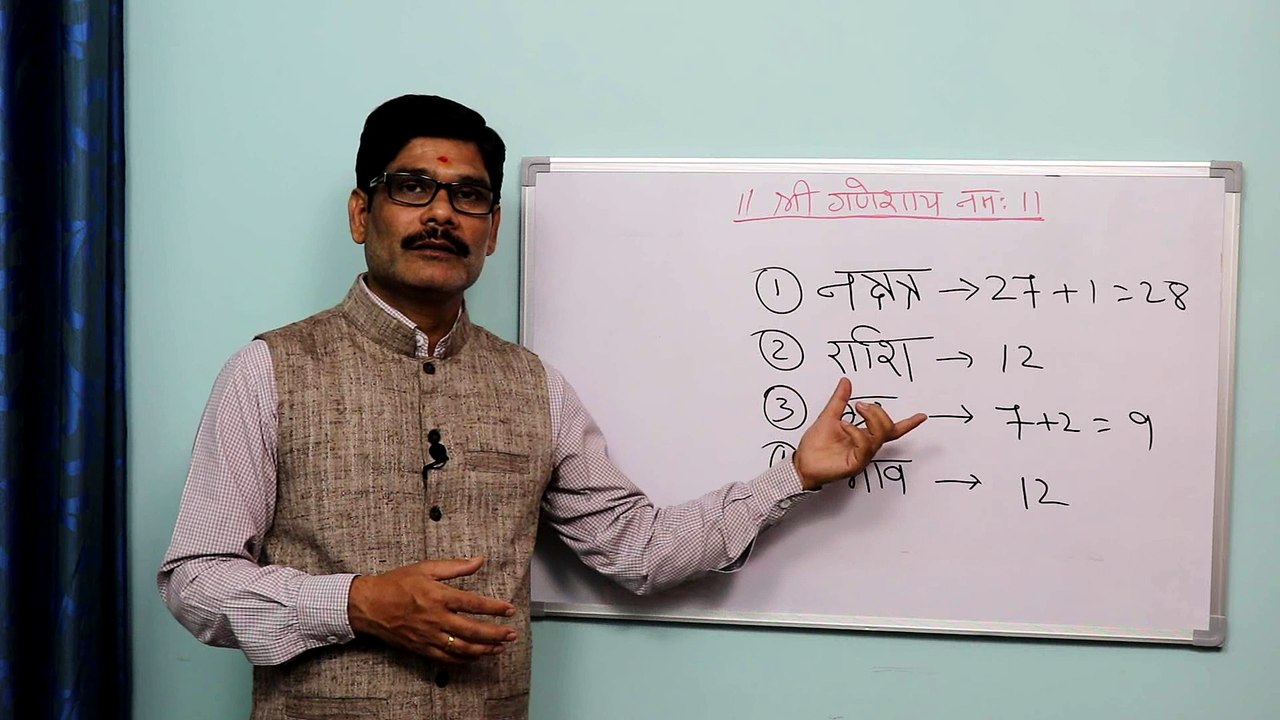 ॥ श्री गणेशाय नमः ॥
① नक्षत्र → 27 + 1 = 28
② राशि → 12
③ → 7 + 2 = 9
भाव → 12